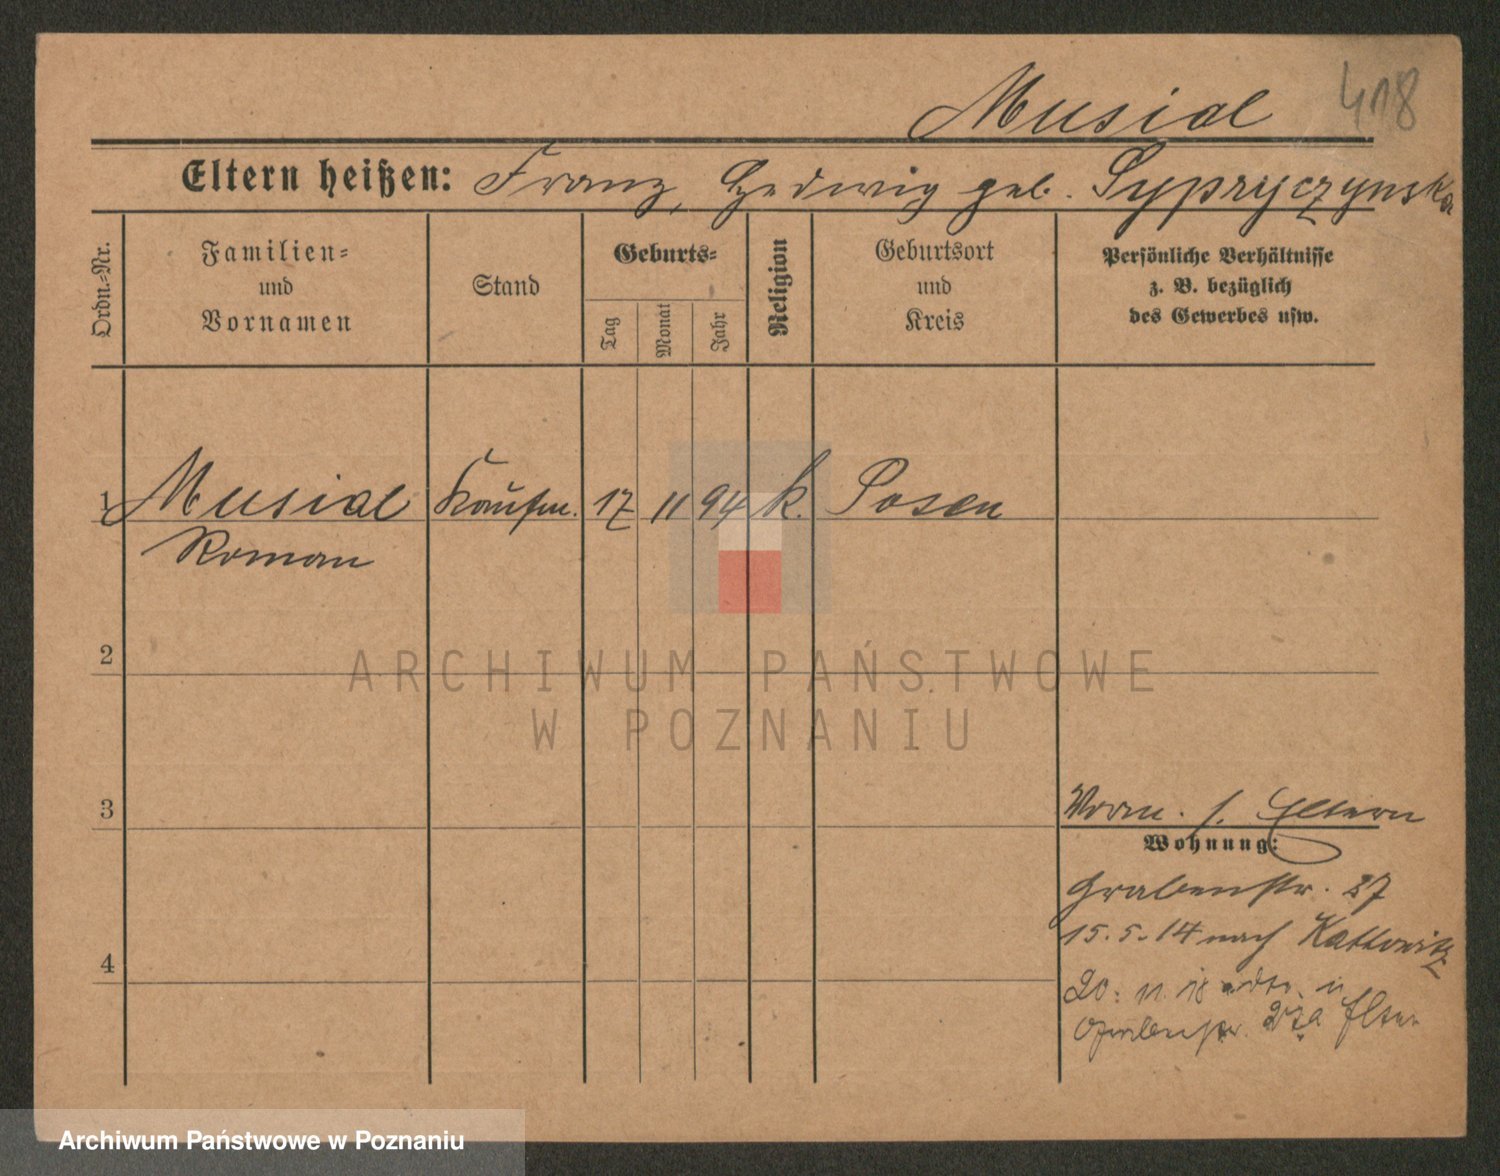 Musial 418
Eltern heißen: Franz, Hedwig geb. Sypryczynska
Ordn.-Nr.
Familien-
und
Vornamen
Stand
Geburts-
Tag
Monat
Jahr
Religion
Geburtsort
und
Kreis
Persönliche Verhältnisse
z. B. bezüglich
des Gewerbes usw.
1 Musial Kaufm. 17 11 94 k. Posen
Roman
2
3
Vorm. s. Eltern
Wohnung:
Grabenstr. 27
15.5.14 nach Kattowitz
4
20. 11. 18
Grabenstr. 27a Eltern
ARCHIWUM PAŃSTWOWE
W POZNANIU
Archiwum Państwowe w Poznaniu